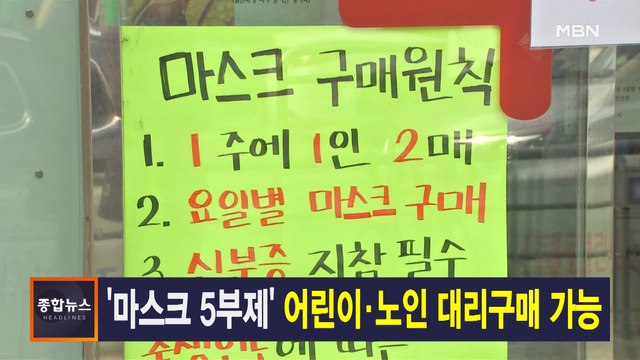 MBN
마스크 구매원칙
1. 1주에 1인 2매
2. 요일별 마스크 구매
3. 신분증 지참 필수
종합뉴스
HEADLINES
'마스크 5부제' 어린이·노인 대리구매 가능